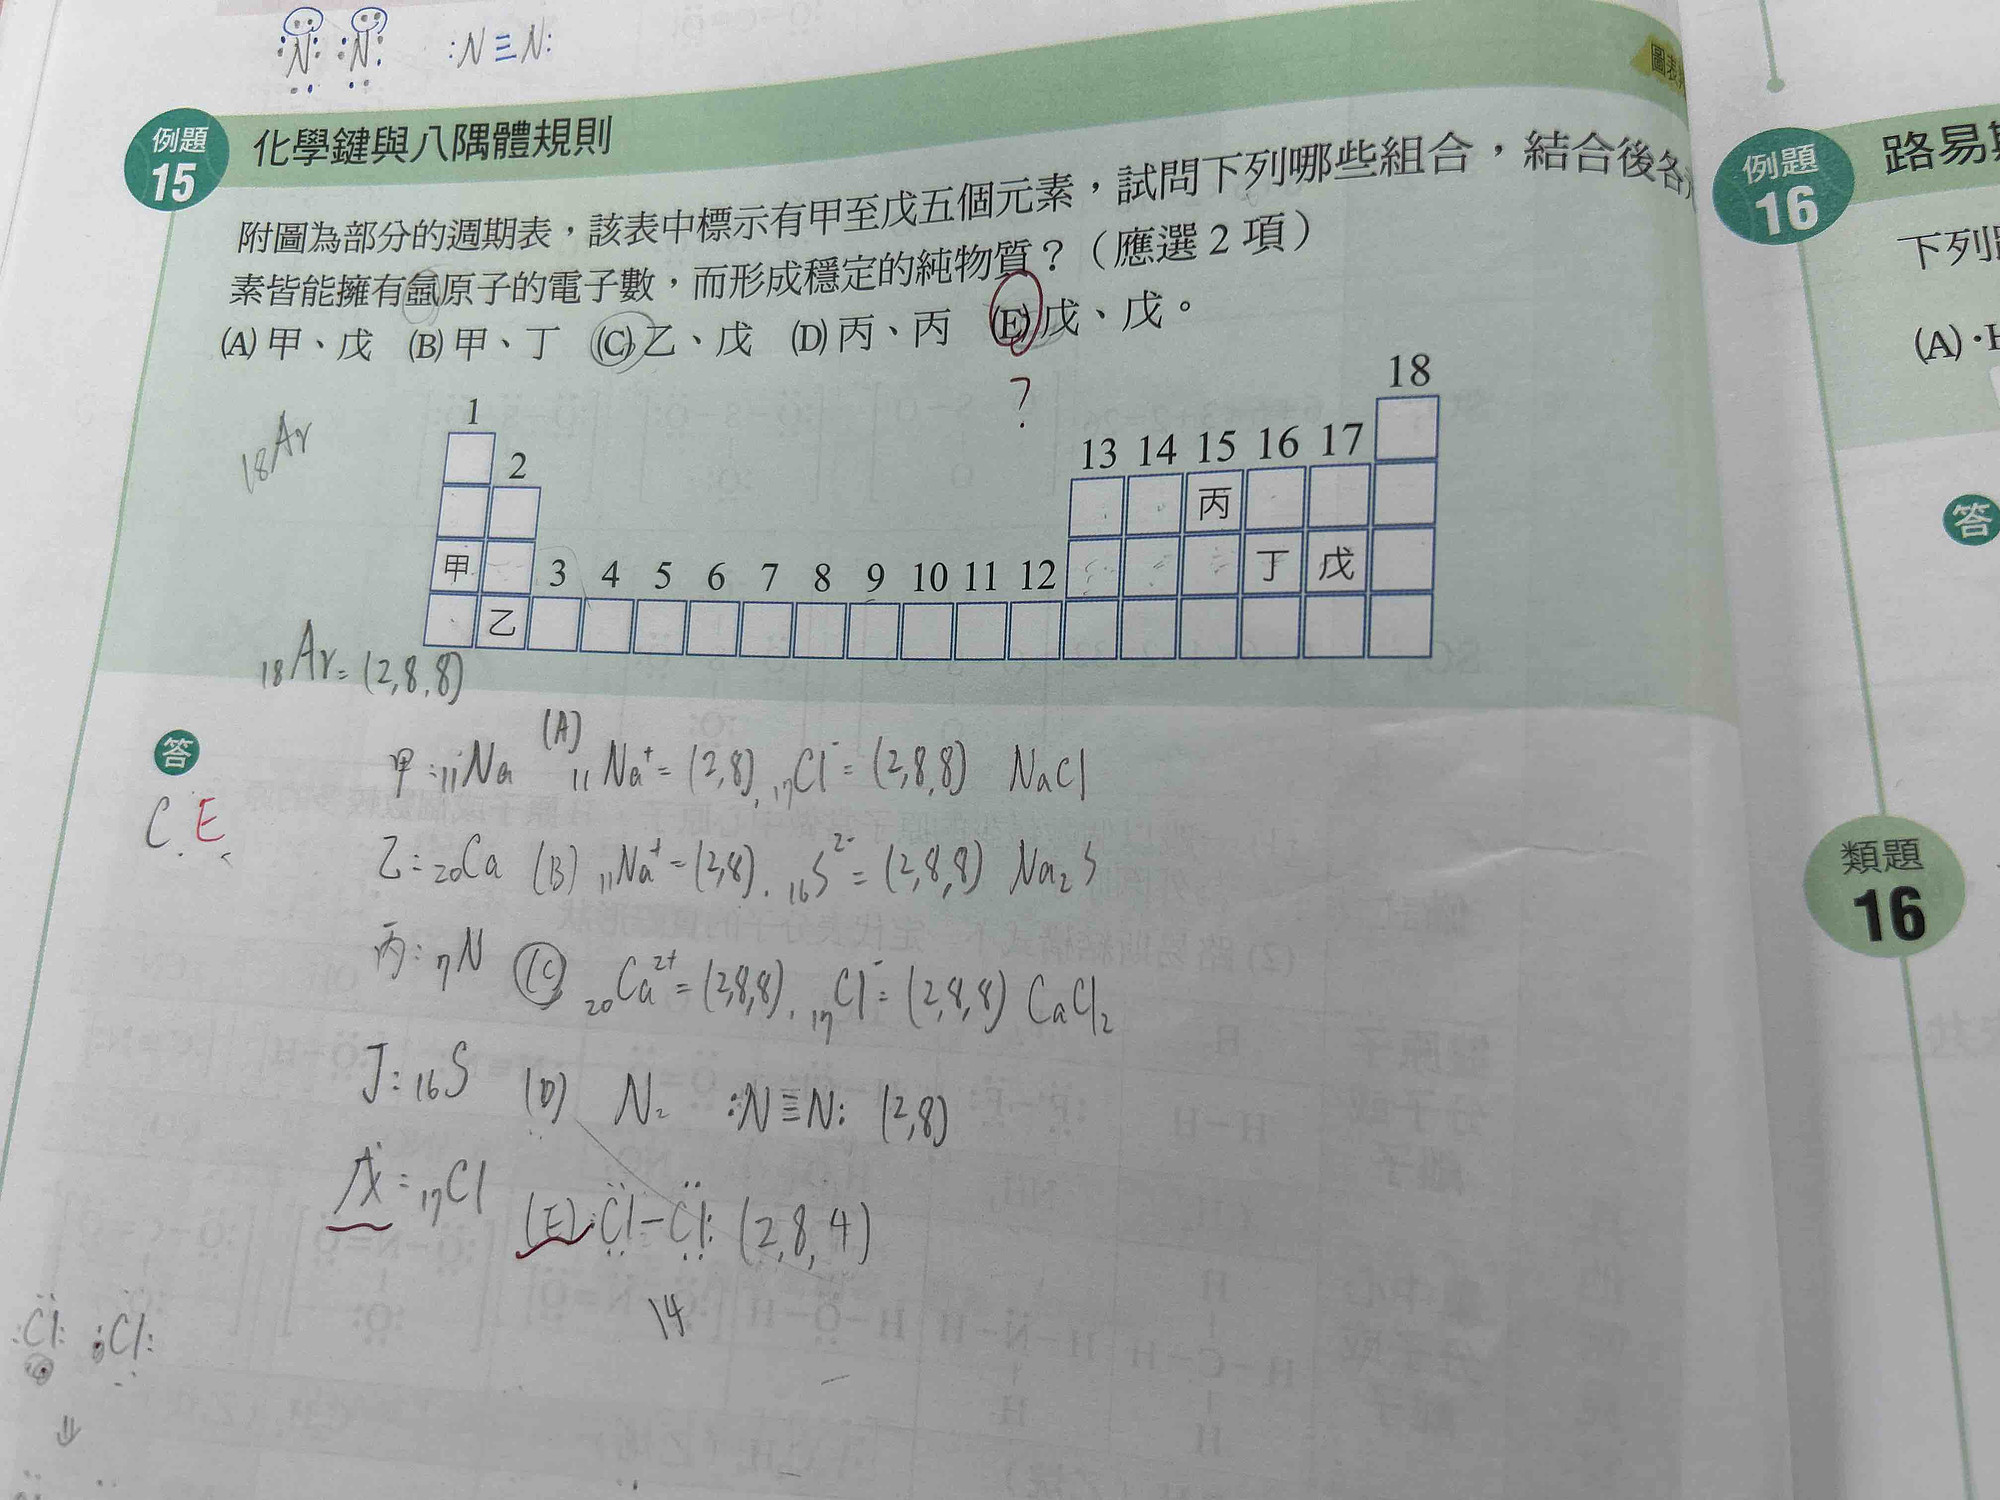 :N: :N: :N≡N:
圖表
例題 15 化學鍵與八隅體規則
附圖為部分的週期表，該表中標示有甲至戊五個元素，試問下列哪些組合，結合後各
素皆能擁有氬原子的電子數，而形成穩定的純物質？（應選2項）
(A)甲、戊 (B)甲、丁 (C)乙、戊 (D)丙、丙 (E)戊、戊。
?
₁₈Ar
1 18
2 13 14 15 16 17
丙
甲 3 4 5 6 7 8 9 10 11 12 丁 戊
乙
₁₈Ar = (2,8,8)
答
C E
甲:₁₁Na (A) ₁₁Na⁺ = (2,8), ₁₇Cl⁻ = (2,8,8) NaCl
乙:₂₀Ca (B) ₁₁Na⁺ = (2,8), ₁₆S²⁻ = (2,8,8) Na₂S
丙:₇N (C) ₂₀Ca²⁺ = (2,8,8), ₁₇Cl⁻ = (2,8,8) CaCl₂
丁:₁₆S (D) N₂ :N≡N: (2,8)
戊:₁₇Cl (E) :Cl-Cl: (2,8,4)
14
:Cl: :Cl:
⇓
例題 16 路易
下列
(A)·H
答
類題 16